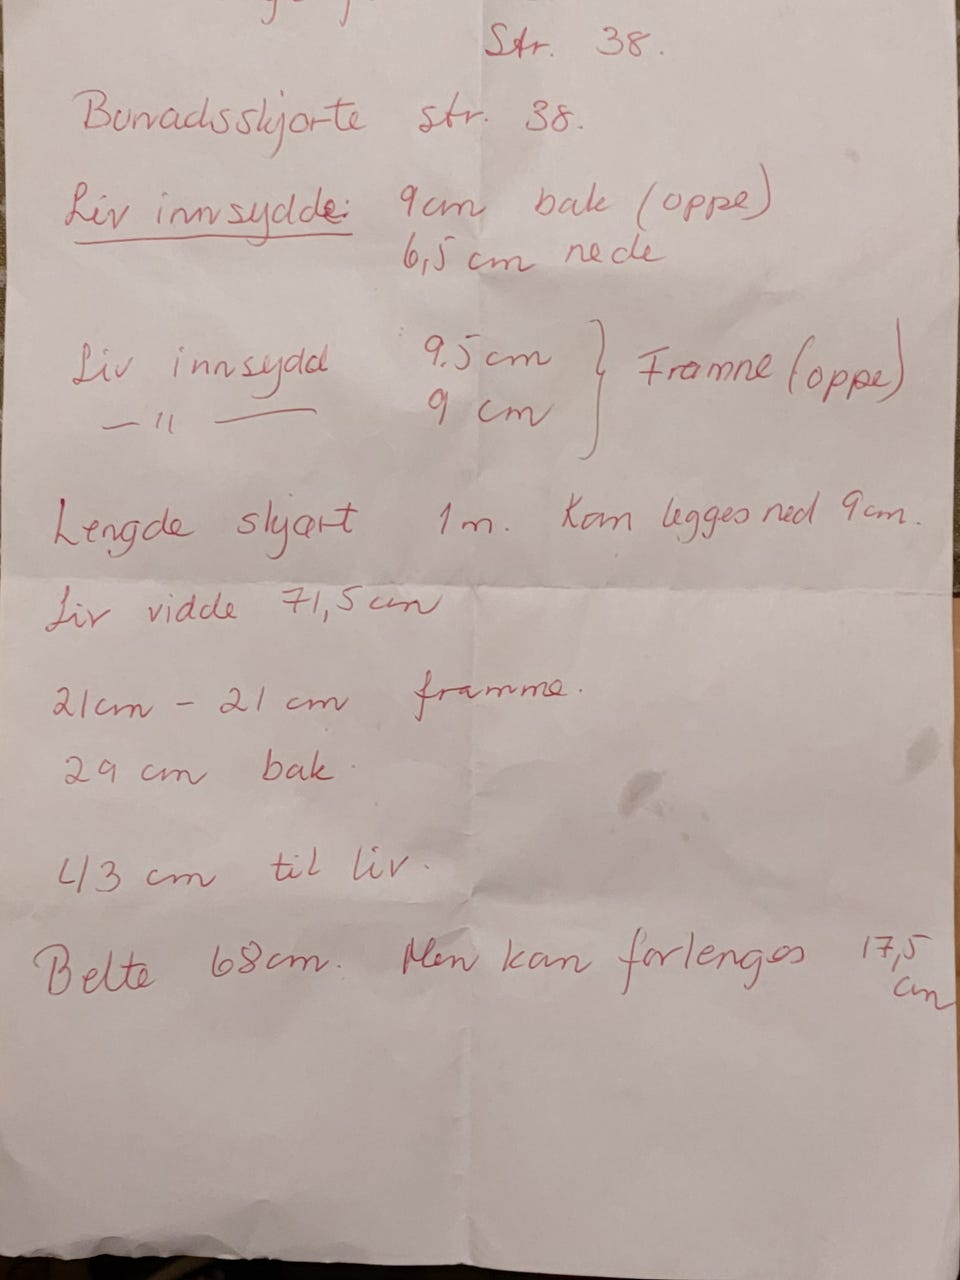 Str. 38.
Bunadsskjorte str. 38.
Liv innsydde: 9cm bak (oppe)
6,5 cm nede
Liv innsydd 9.5cm } Framme (oppe)
— " — 9 cm
Lengde skjørt 1m. Kan legges ned 9cm.
Liv vidde 71,5 cm
21cm - 21 cm framme.
29 cm bak.
43 cm til liv.
Belte 68cm. Men kan forlenges 17,5
cm